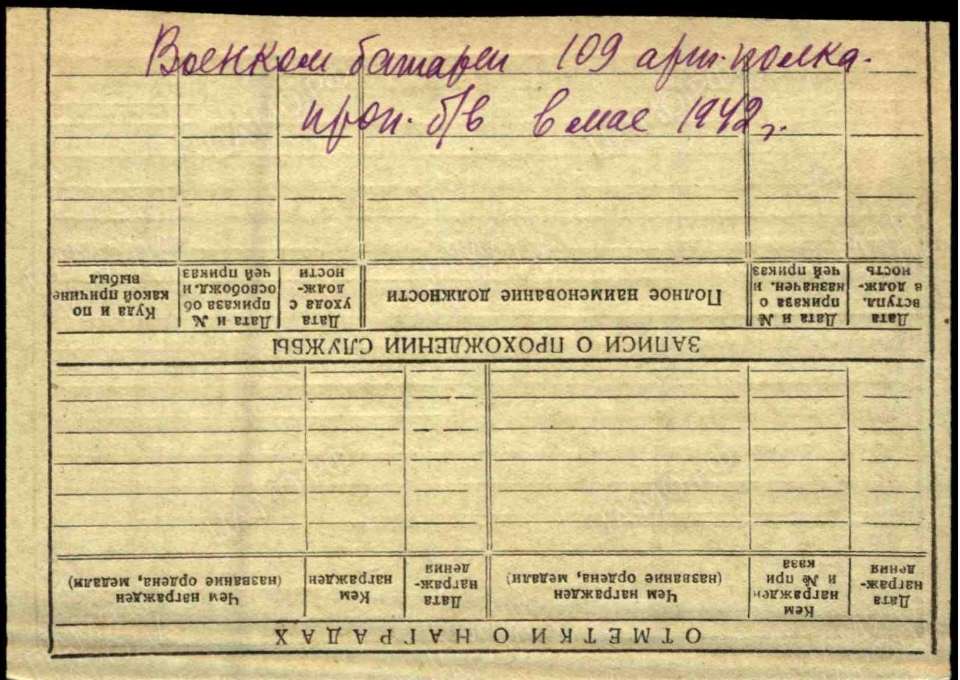 Военком батареи 109 арт. полка.
проп. б/в в мае 1942 г.
ОТМЕТКИ О НАГРАДАХ
Дата награж-дения
Кем награжден и № при каза
Чем награжден (название ордена, медали)
Дата награж-дения
Кем награжден
Чем награжден (название ордена, медали)
ЗАПИСИ О ПРОХОЖДЕНИИ СЛУЖБЫ
Дата вступл. в долж-ность
Дата и № приказа о назначен. и чей приказ
Полное наименование должности
Дата ухода с долж-ности
Дата и № приказа об освобожд. и чей приказ
Куда и по какой причине выбыл